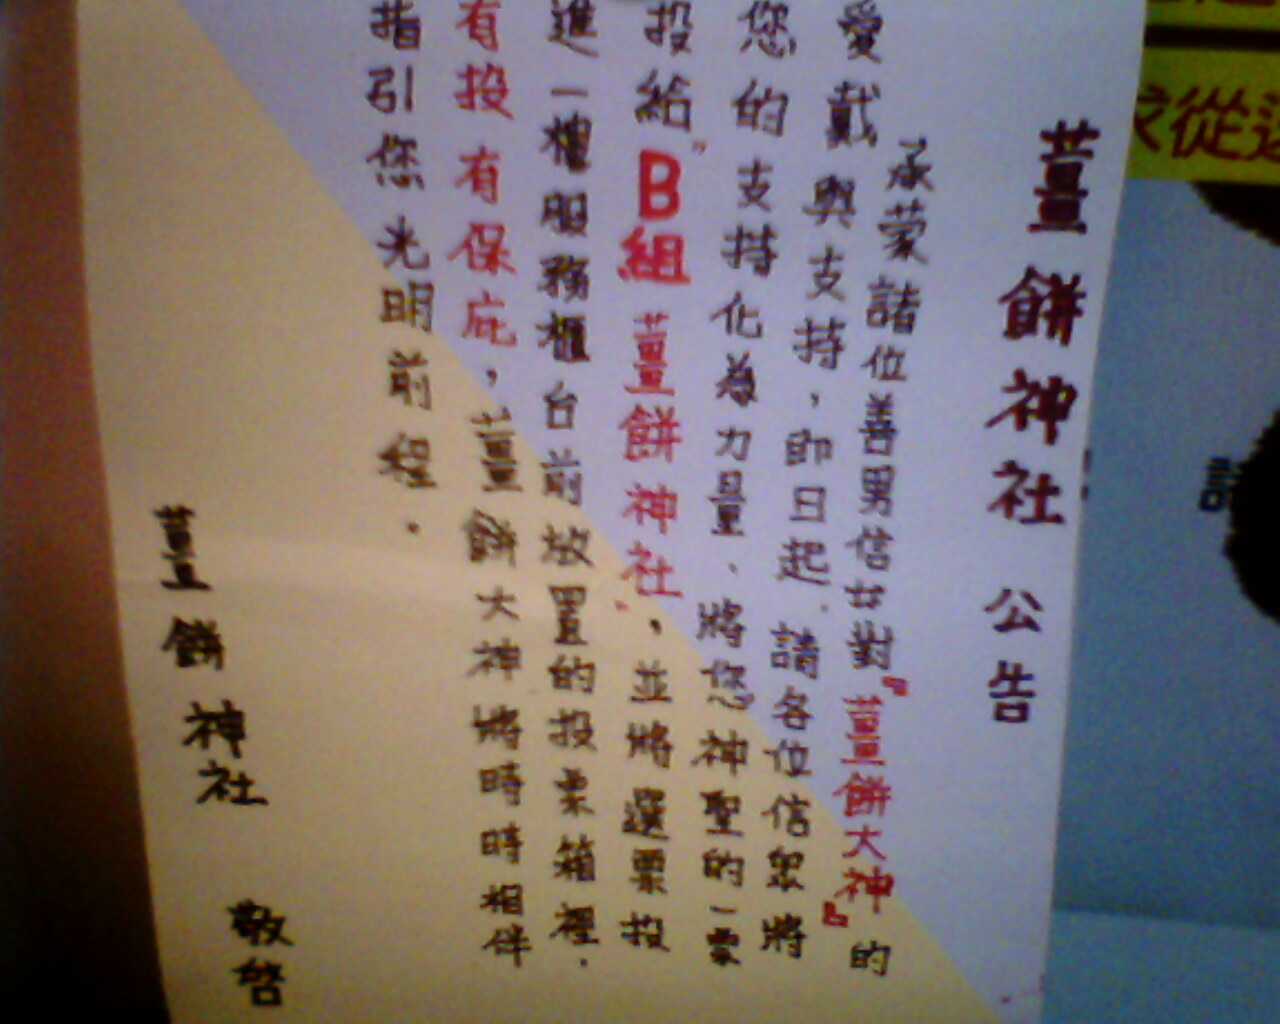 求從這
薑餅神社 公告
承蒙諸位善男信女對『薑餅大神』的
愛戴與支持，即日起．請各位信眾將
您的支持化為力量．將您神聖的一票
投給"B組 薑餅神社"，並將選票投
進一樓服務櫃台前放置的投票箱裡．
有投有保庇，薑餅大神將時時相伴
指引您光明前程．
薑餅神社 敬啓